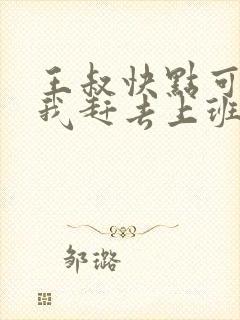 王叔快點可
我赶去上班
邹潞